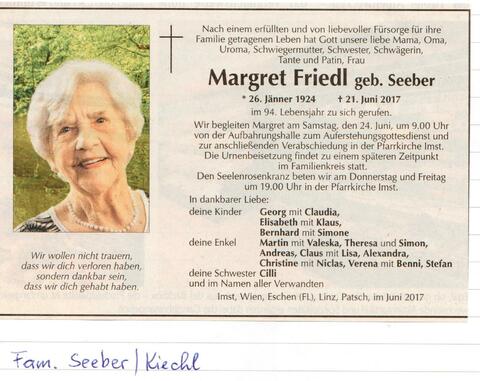 Nach einem erfüllten und von liebevoller Fürsorge für ihre
Familie getragenen Leben hat Gott unsere liebe Mama, Oma,
Uroma, Schwiegermutter, Schwester, Schwägerin,
Tante und Patin, Frau
Margret Friedl geb. Seeber
* 26. Jänner 1924 † 21. Juni 2017
im 94. Lebensjahr zu sich gerufen.
Wir begleiten Margret am Samstag, den 24. Juni, um 9.00 Uhr
von der Aufbahrungshalle zum Auferstehungsgottesdienst und
zur anschließenden Verabschiedung in der Pfarrkirche Imst.
Die Urnenbeisetzung findet zu einem späteren Zeitpunkt
im Familienkreis statt.
Den Seelenrosenkranz beten wir am Donnerstag und Freitag
um 19.00 Uhr in der Pfarrkirche Imst.
In dankbarer Liebe:
deine Kinder Georg mit Claudia,
Elisabeth mit Klaus,
Bernhard mit Simone
deine Enkel Martin mit Valeska, Theresa und Simon,
Andreas, Claus mit Lisa, Alexandra,
Christine mit Niclas, Verena mit Benni, Stefan
deine Schwester Cilli
und im Namen aller Verwandten
Imst, Wien, Eschen (FL), Linz, Patsch, im Juni 2017
Wir wollen nicht trauern,
dass wir dich verloren haben,
sondern dankbar sein,
dass wir dich gehabt haben.
Fam. Seeber/Kiechl